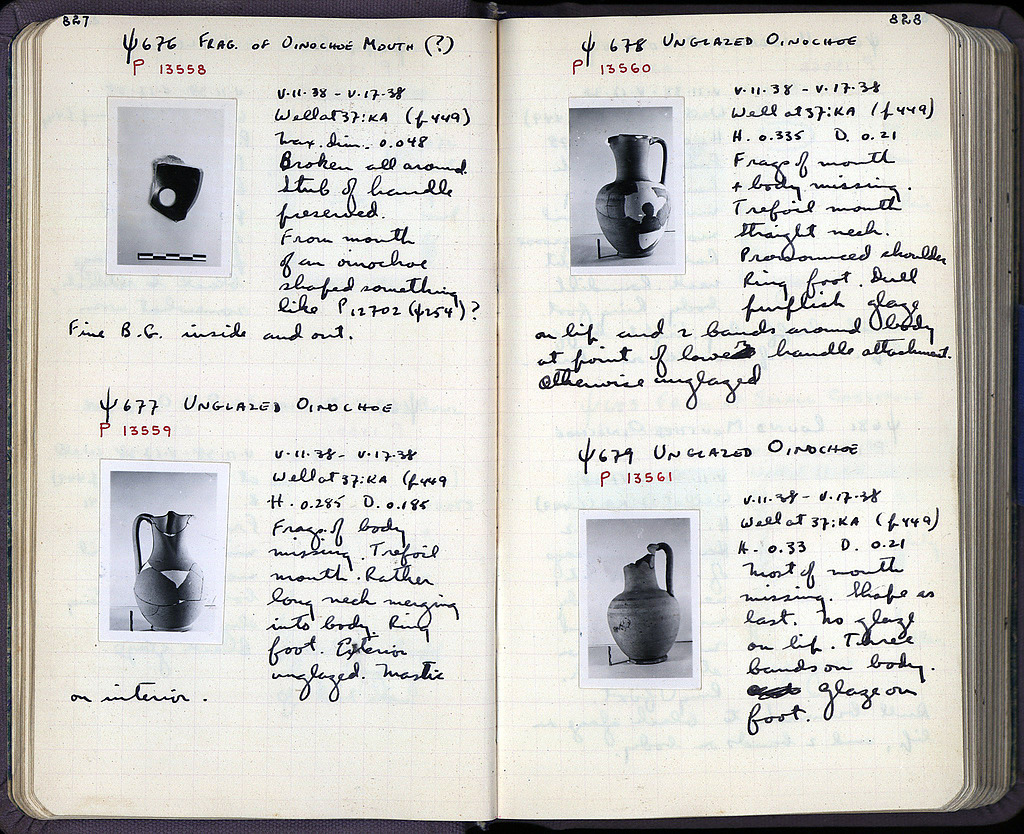 827
ψ 676 FRAG. OF OINOCHOE MOUTH (?)
P 13558
V.11.38 - V.17.38
Well at 37:KA (p 449)
Max. dim. 0.048
Broken all around.
Stub of handle
preserved.
From mouth
of an oinochoe
shaped something
like P 12702 (ψ254)?
Fine B.G. inside and out.
ψ677 UNGLAZED OINOCHOE
P 13559
V.11.38 - V.17.38
Well at 37:KA (p 449
H. 0.285 D. 0.185
Frags of body
missing. Trefoil
mouth. Rather
long neck merging
into body. Ring
foot. Exterior
unglazed. Mastic
on interior.
828
ψ 678 UNGLAZED OINOCHOE
P 13560
V.11.38 - V.17.38
Well at 37:KA (p 449)
H. 0.335 D. 0.21
Frags of mouth
+ body missing.
Trefoil mouth
straight neck.
Pronounced shoulder
Ring foot. Dull
purplish glaze
on lip and 2 bands around body
at point of lower handle attachment.
Otherwise unglazed
ψ679 UNGLAZED OINOCHOE
P 13561
V.11.38 - V.17.38
Well at 37:KA (p 449)
H. 0.33 D. 0.21
Most of mouth
missing. Shape as
last. No glaze
on lip. Three
bands on body.
glaze on
foot.